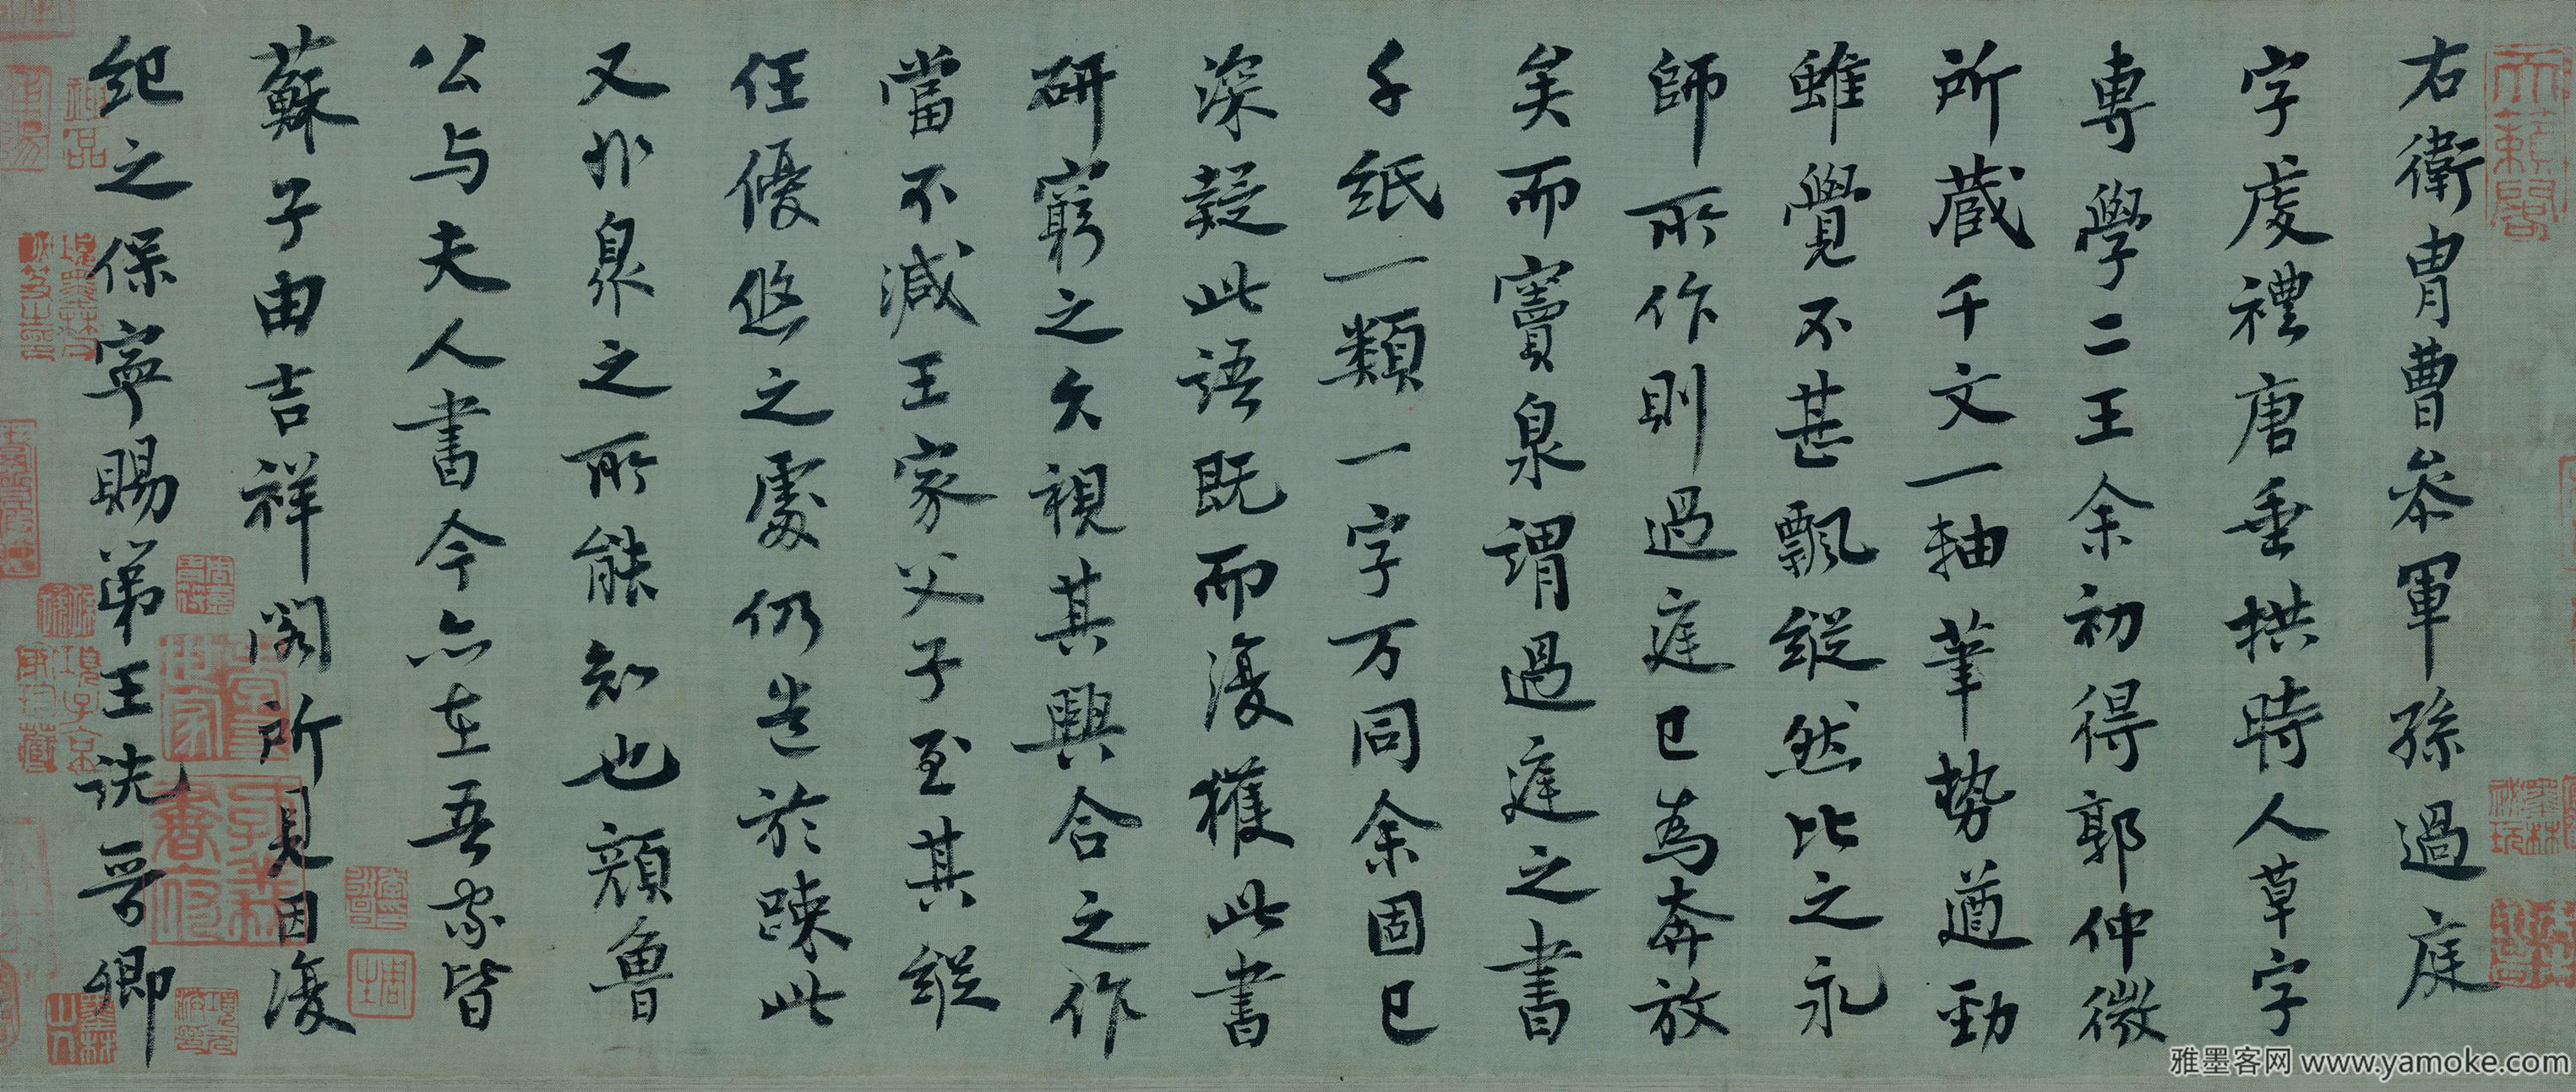 右衛胄曹參軍孫過庭
字虔禮唐垂拱時人草字
專學二王余初得郭仲微
所藏千文一軸筆勢遒勁
雖覺不甚飄縱然比之永
師所作則過庭已為奔放
矣而竇臮謂過庭之書
千紙一類一字万同余固已
深疑此語既而復獲此書
研窮之久視其興合之作
當不減王家父子至其縱
任優悠之處仍造於踈此
又非臮之所能知也顏魯
公与夫人書今亦在吾家皆
蘇子由吉祥閣所見因復
紀之保寧賜第王詵晉卿
雅墨客网 www.yamoke.com